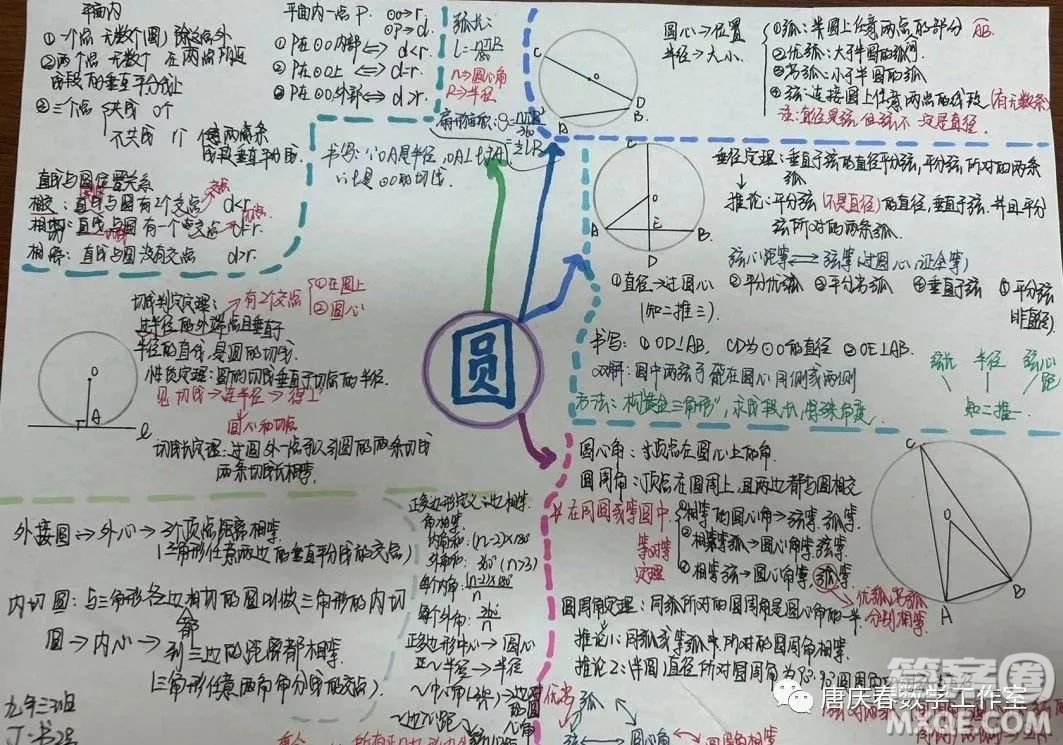 平面内
① 一个点 无数个(圆) 除这点外
② 两个点 无数个 在两点所连
线段的垂直平分线上
③ 三个点 共线 0个
不共线 1个 任意两条
线段垂直平分线
平面内一点P. ⊙O→r.
OP→d.
① P在⊙O内部 ⟺ d<r.
② P在⊙O上 ⟺ d=r.
③ P在⊙O外部 ⟺ d>r.
弧长:
l=nπR/180
n→圆心角
R→半径
扇形面积: S=nπR²/360
=½LR
书写: ∵OA是半径, OA⊥l于A
∴l是⊙O的切线.
C
O
D
A
B
圆心→位置
半径→大小.
① 弧: 圆上任意两点的部分 AB.
② 优弧: 大于半圆的弧
③ 劣弧: 小于半圆的弧
④ 弦: 连接圆上任意两点的线段 (有无数条)
注: 直径是弦, 但弦不一定是直径.
直线与圆位置关系
相交: 直线与圆有2个交点 d<r.
相切: 直线与圆有一个交点 d=r.
相离: 直线与圆没有交点 d>r.
C
O
A
E
B.
D
垂径定理: 垂直于弦的直径平分弦, 平分弦所对的两条
弧
推论: 平分弦(不是直径)的直径, 垂直于弦. 并且平分
弦所对的两条弧.
弦心距等⟺弦等 (过圆心, 证全等)
① 直径→过圆心 ② 平分优弧 ③ 平分劣弧 ④ 垂直于弦 ⑤ 平分弦
(知二推三).
(非直径)
书写: ① OD⊥AB, CD为⊙O的直径 ② OE⊥AB.
双解: 圆中两弦可能在圆心同侧或两侧
方法: 构"黄金三角形", 求线段长, 特殊角度.
弦长 半径 弦心距
知二推一
圆
切线判定定理: →有2个交点 ① 在圆上
② 圆心
过半径的外端点且垂直于
半径的直线, 是圆的切线.
性质定理: 圆的切线垂直于切点的半径.
见切线→连半径→得⊥
圆心和切点
切线长定理: 过圆外一点引圆的两条切线
两条切线长相等.
O
A
l
圆心角: 顶点在圆心上的角.
圆周角: 顶点在圆周上, 且两边都与圆相交
在同圆或等圆中
等对等
定理
① 相等的圆心角→弦等. 弧等.
② 相等弧→圆心角等. 弦等.
③ 相等弦→圆心角等. 弧等.
优弧劣弧
分别相等
圆周角定理: 同弧所对的圆周角是圆心角的一半
推论1: 同弧或等弧所对的圆周角相等.
推论2: 半圆(直径)所对圆周角为90°. 90°圆周
C
O
A
B
外接圆→外心→3个顶点距离相等.
(三角形任意两边的垂直平分线的交点)
内切圆: 与三角形各边都相切的圆叫做三角形的内切
圆→内心→到三边的距离都相等.
(三角形任意两角角分线的交点)
正多边形定义: 边相等.
角相等.
内角和: (n-2)×180°
外角和: 360° (n≥3)
每个内角: (n-2)×180°/n
每个外角: 360°/n
正多边形中心→圆心
半径→半径
中心角
九年三班
弧
弦 圆心角
优劣
答案圈
MXQE.COM
唐庆春数学工作室